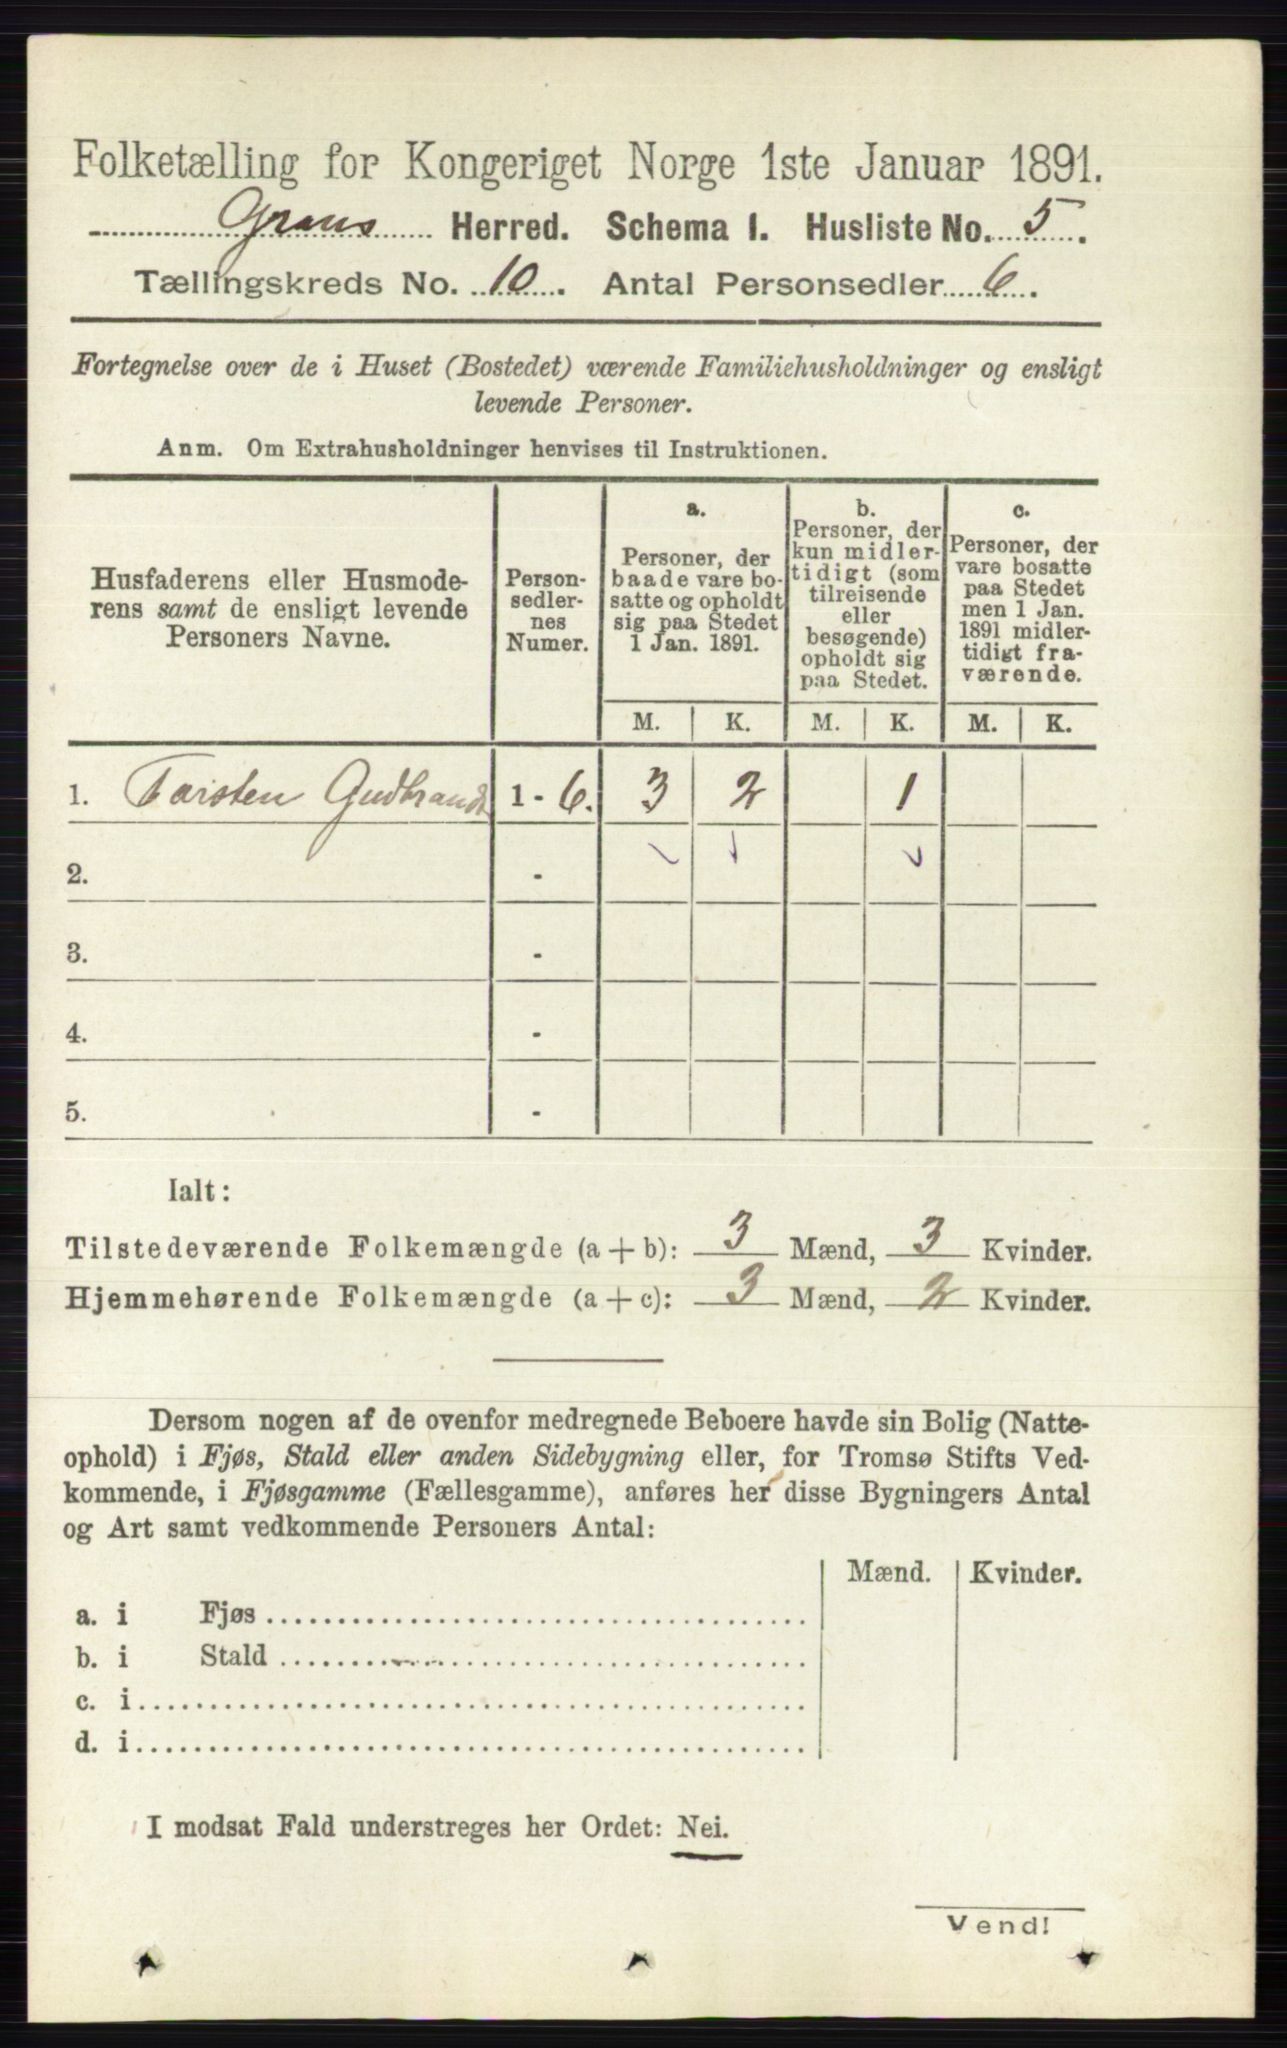 Folketælling for Kongeriget Norge 1ste Januar 1891.
Grans Herred. Schema 1. Husliste No. 5.
Tællingskreds No. 10. Antal Personsedler 6.
Fortegnelse over de i Huset (Bostedet) værende Familiehusholdninger og ensligt
levende Personer.
Anm. Om Extrahusholdninger henvises til Instruktionen.
Husfaderens eller Husmode-
rens samt de ensligt levende
Personers Navne.
Person-
sedler-
nes
Numer.
a.
Personer, der
baade vare bo-
satte og opholdt
sig paa Stedet
1 Jan. 1891.
b.
Personer, der
kun midler-
tidigt (som
tilreisende
eller
besøgende)
opholdt sig
paa Stedet.
c.
Personer, der
vare bosatte
paa Stedet
men 1 Jan.
1891 midler-
tidigt fra-
værende.
M. K. M. K. M. K.
1. Torsten Gudbrands 1 - 6. 3 2 1
2. -
3. -
4. -
5. -
Ialt:
Tilstedeværende Folkemængde (a + b): 3 Mænd, 3 Kvinder.
Hjemmehørende Folkemængde (a + c): 3 Mænd, 2 Kvinder.
Dersom nogen af de ovenfor medregnede Beboere havde sin Bolig (Natte-
ophold) i Fjøs, Stald eller anden Sidebygning eller, for Tromsø Stifts Ved-
kommende, i Fjøsgamme (Fællesgamme), anføres her disse Bygningers Antal
og Art samt vedkommende Personers Antal:
Mænd. Kvinder.
a. i Fjøs
b. i Stald
c. i
d. i
I modsat Fald understreges her Ordet: Nei.
Vend!